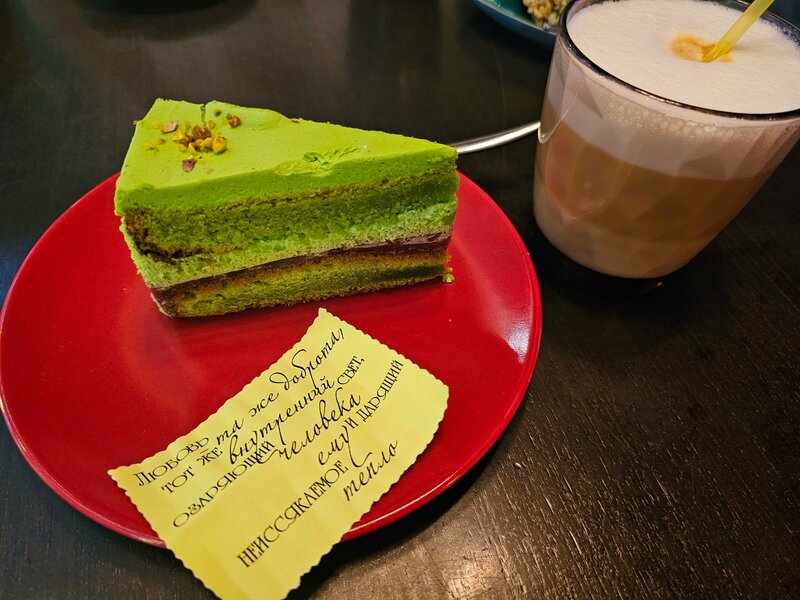 Любовь та же доброта,
тот же внутренний свет,
озаряющий человека
и дарящий ему
неиссякаемое тепло